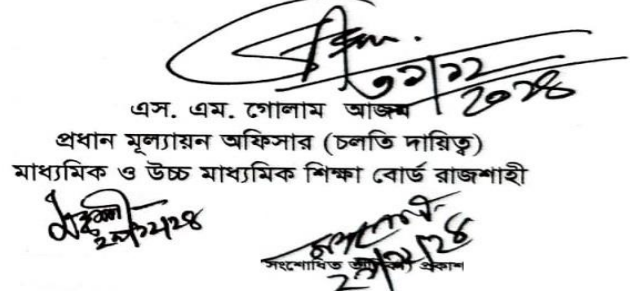 ৩১/১২
২০২৪
এস. এম. গোলাম আজম
প্রধান মূল্যায়ন অফিসার (চলতি দায়িত্ব)
মাধ্যমিক ও উচ্চ মাধ্যমিক শিক্ষা বোর্ড রাজশাহী
সংশোধিত প্রকাশ